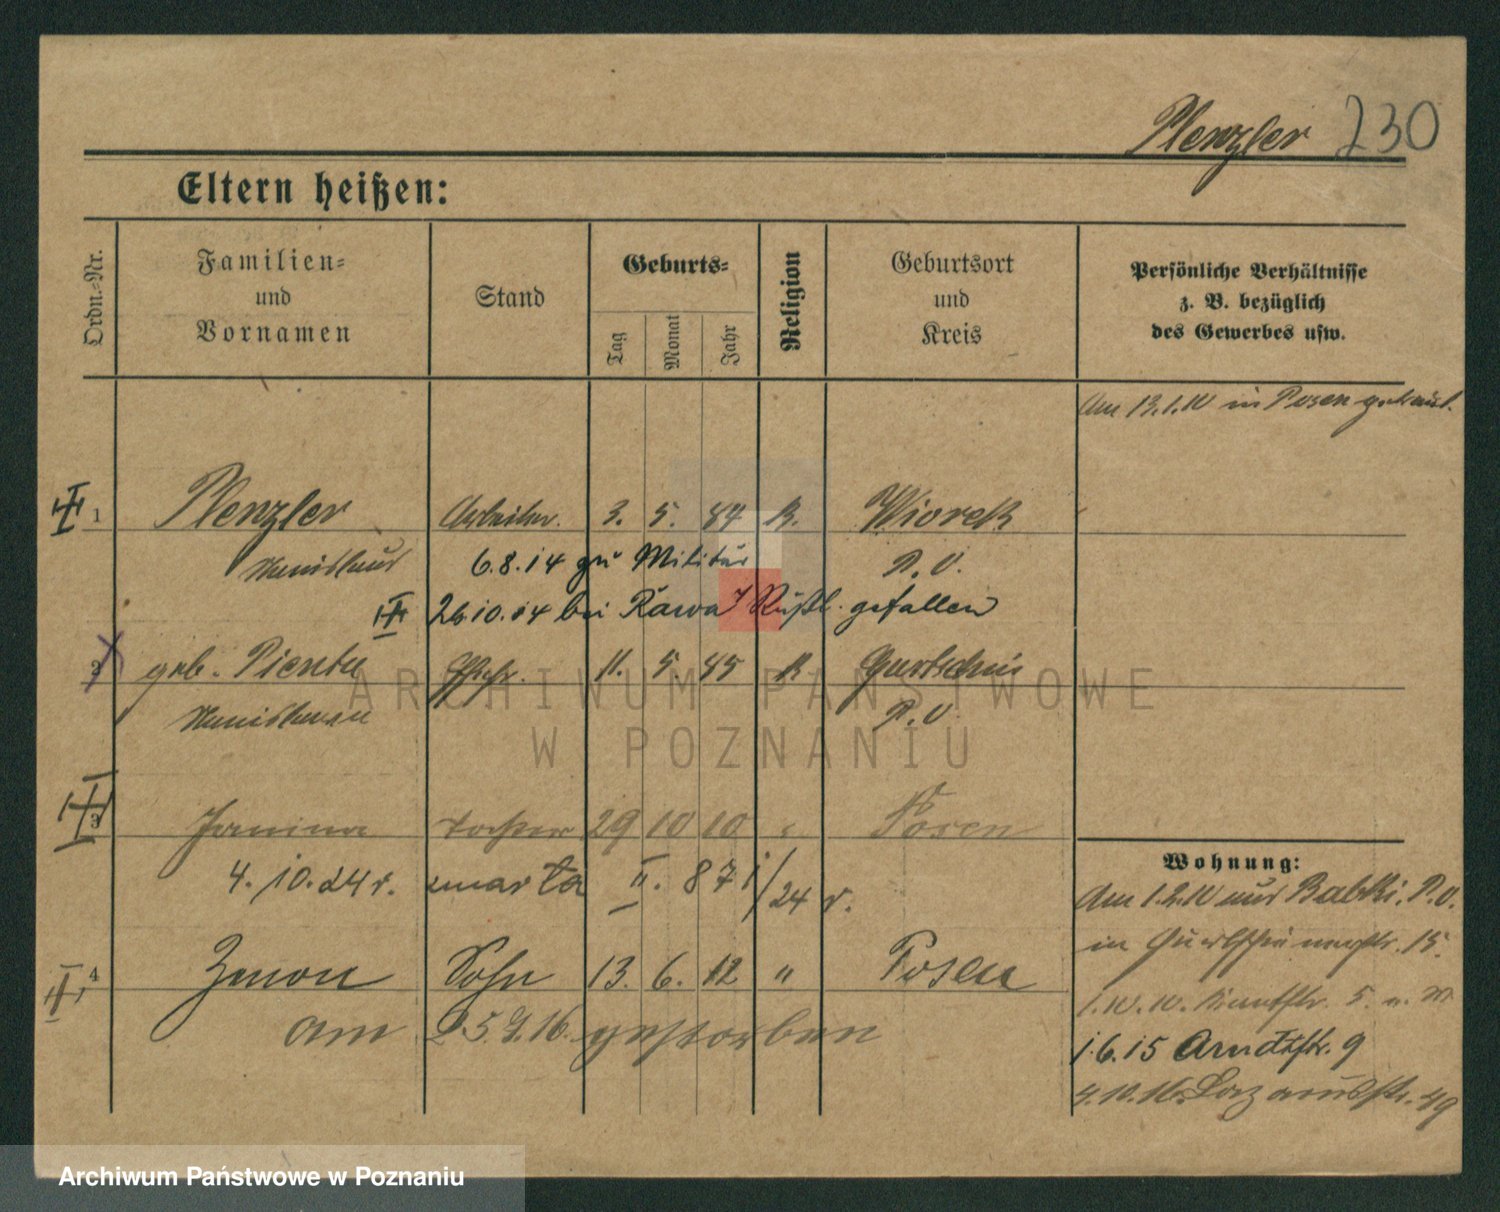 Plenzler 230
Eltern heißen:
Ordn.-Nr.
Familien- und Vornamen
Stand
Geburts-
Tag
Monat
Jahr
Religion
Geburtsort und Kreis
Persönliche Verhältnisse z. B. bezüglich des Gewerbes usw.
Am 13.1.10 in Posen getraut.
1 Plenzler Arbeiter. 3. 5. 84 K. Wiorek
Stanislaus P. O.
6.8.14 zu Militär
26.10.14 bei Rawa Rußl. gefallen
2 geb. Pienta Ehefr. 11. 5. 85 K Gurtschin
Stanislawa P. O.
3 Janina Tochter 29 10 10 " Posen
4. 10. 24 r. zmarła II. 871/24 r.
4 Zenon Sohn 13. 6. 12 " Posen
am 25.9.16. gestorben
Wohnung:
Am 1.2.10 aus Babki. P.O.
in 15.
1.10.10. 5.
1.6.15 Arndtstr. 9
4.10.16. Lazarusstr. 49
ARCHIWUM PAŃSTWOWE
W POZNANIU
Archiwum Państwowe w Poznaniu